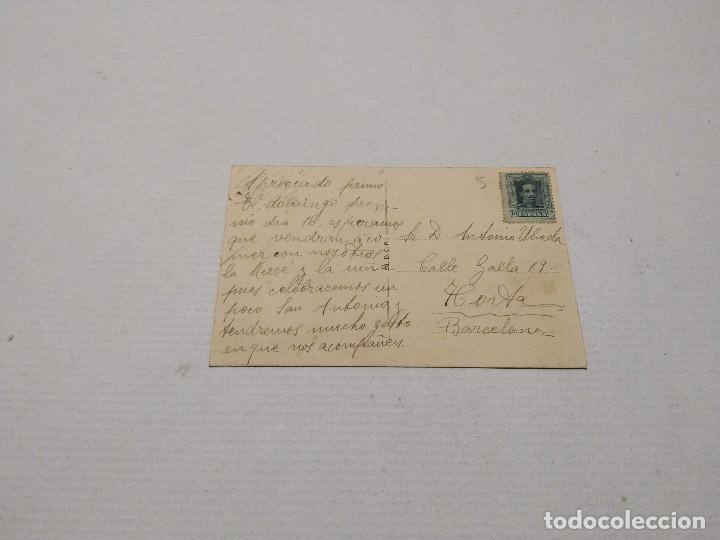 Apreciado primo:
El domingo pro-
mio dia 18, esperamos
que vendran a co-
mer con nosotros
la Mercé y la
pues celebraremos un
poco San Antonio y
tendremos mucho gusto
en que nos acompañeis.
B.D.C.P.
Sr. D. Antonio Ubeda
Calle Galla 19-
Horta
Barcelona
5
ESPAÑA
todocoleccion
todocoleccion.net